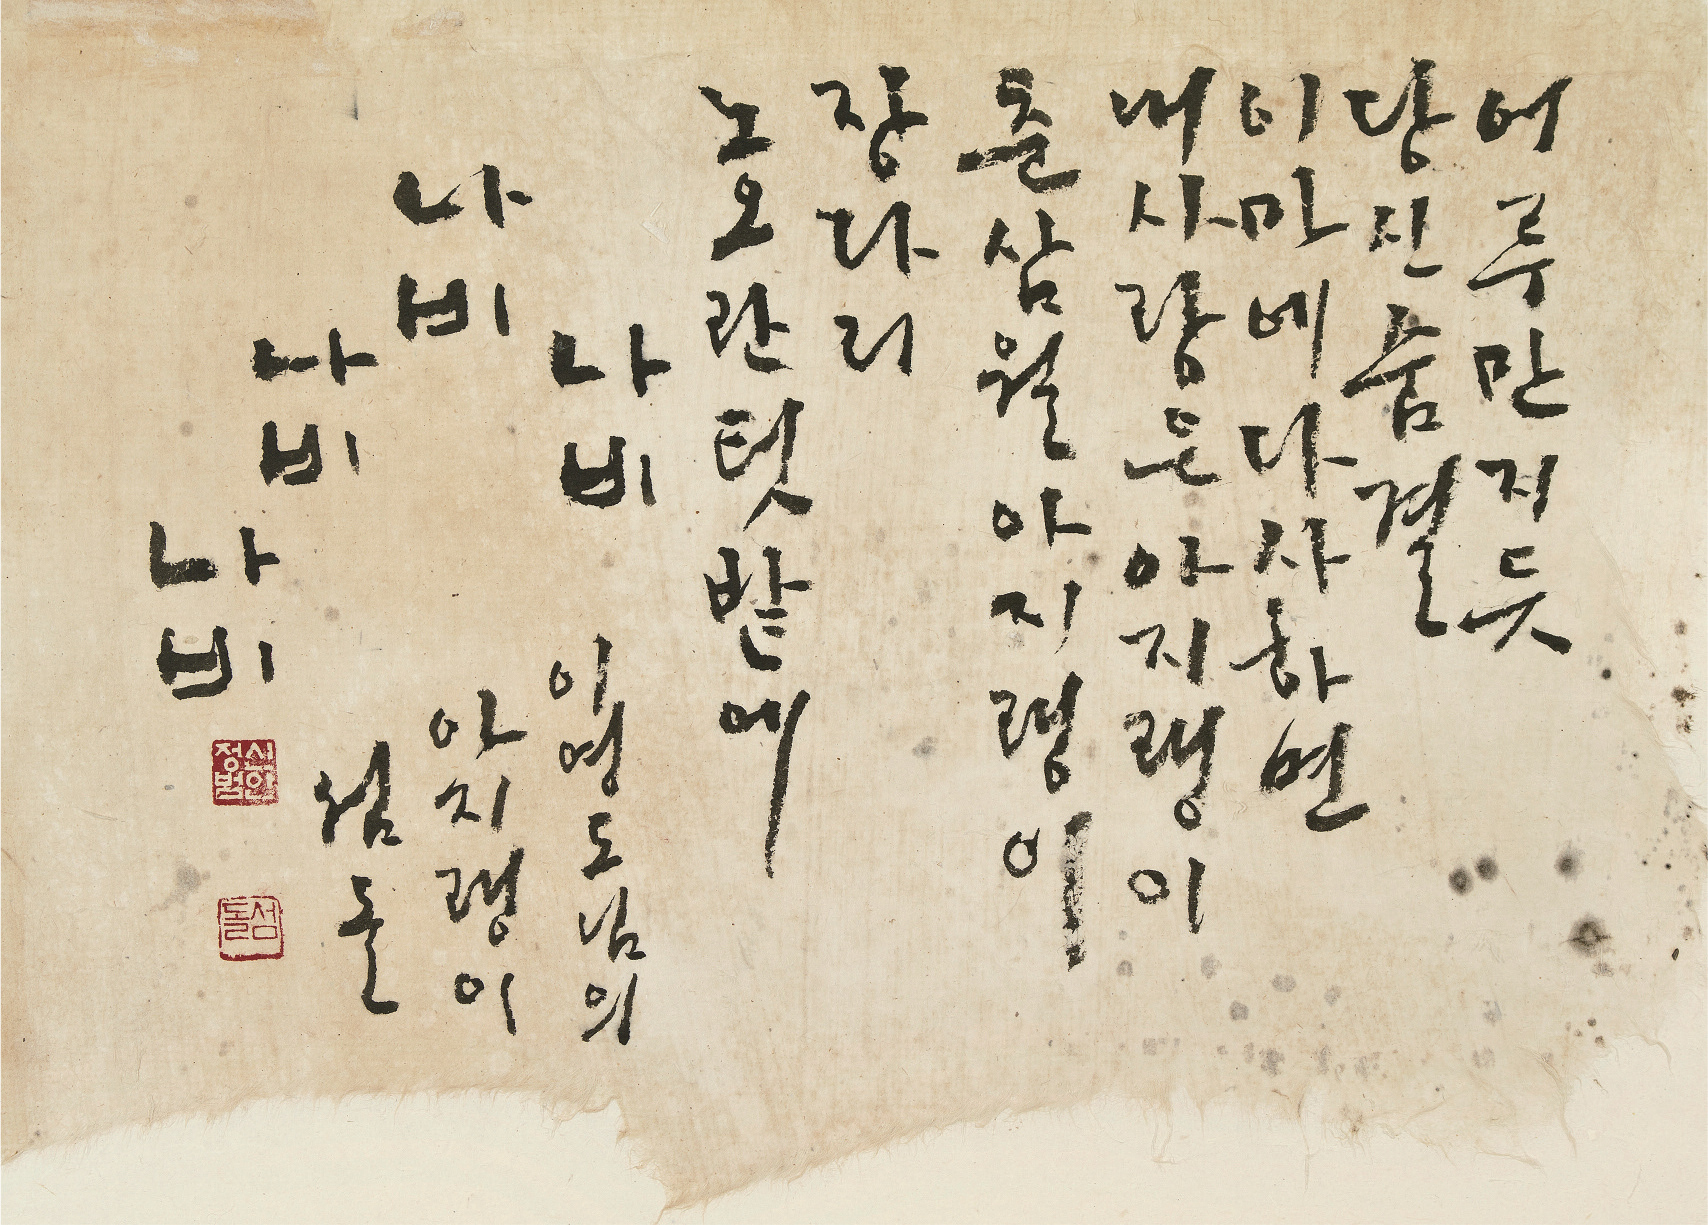 어루만지듯
당신숨결
이마에다사하면
내사랑은아지랭이
춘삼월아지랭이
장다리
노오란텃밭에
나비
나비
나비
나비
이영도님의
아지랭이
섬돌
섬돌